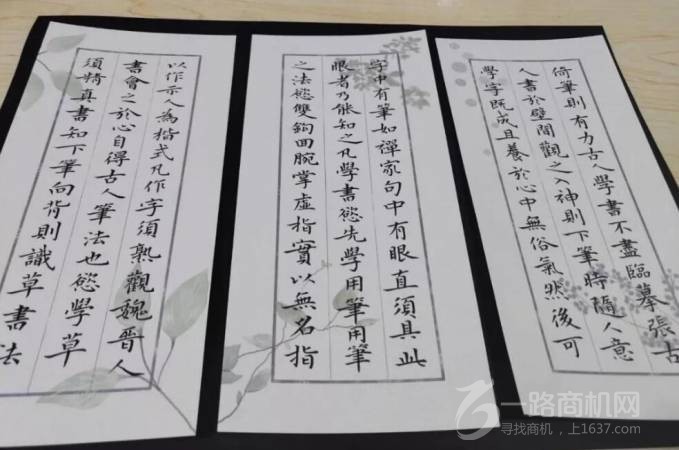 字中有筆如禪家句中有眼直須具此
眼者乃能知之凡學書慾先學用筆用筆
之法慾雙鉤囬腕掌虛指實以無名指
倚筆則有力古人學書不盡臨摹張古
人書於壁間觀之入神則下筆時隨人意
學字既成且養於心中無俗氣然後可
以作示人為楷式凡作字須熟觀魏晉人
書會之於心自得古人筆法也慾學草
須精真書知下筆向背則識草書法
一路商机网
寻找商机，上1637.com